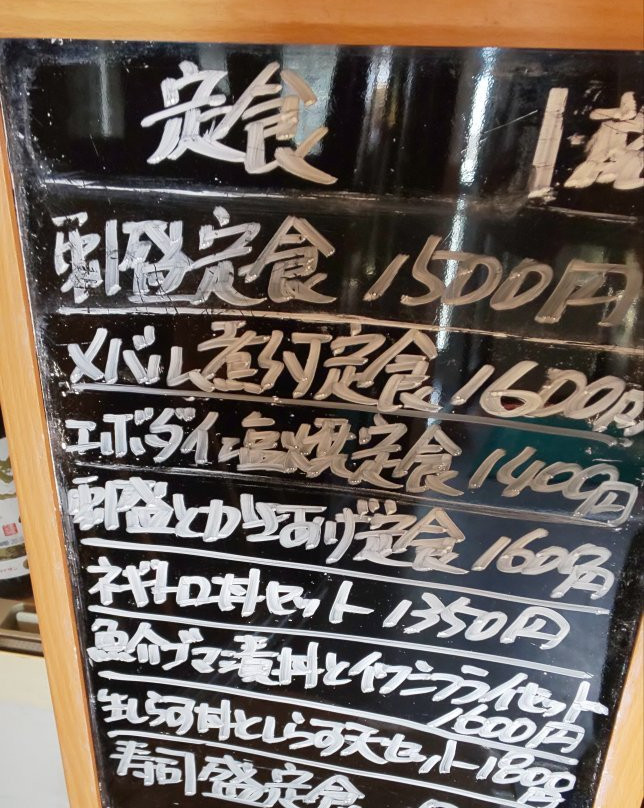 定食
刺盛定食 1500円
メバル煮付定食 1600円
エボダイ塩焼定食 1400円
刺盛とからあげ定食 1600円
ネギトロ丼セット 1350円
ゴマ漬丼とイワシフライセット
1600円
生しらす丼としらす天セット 1800円
寿司盛定食